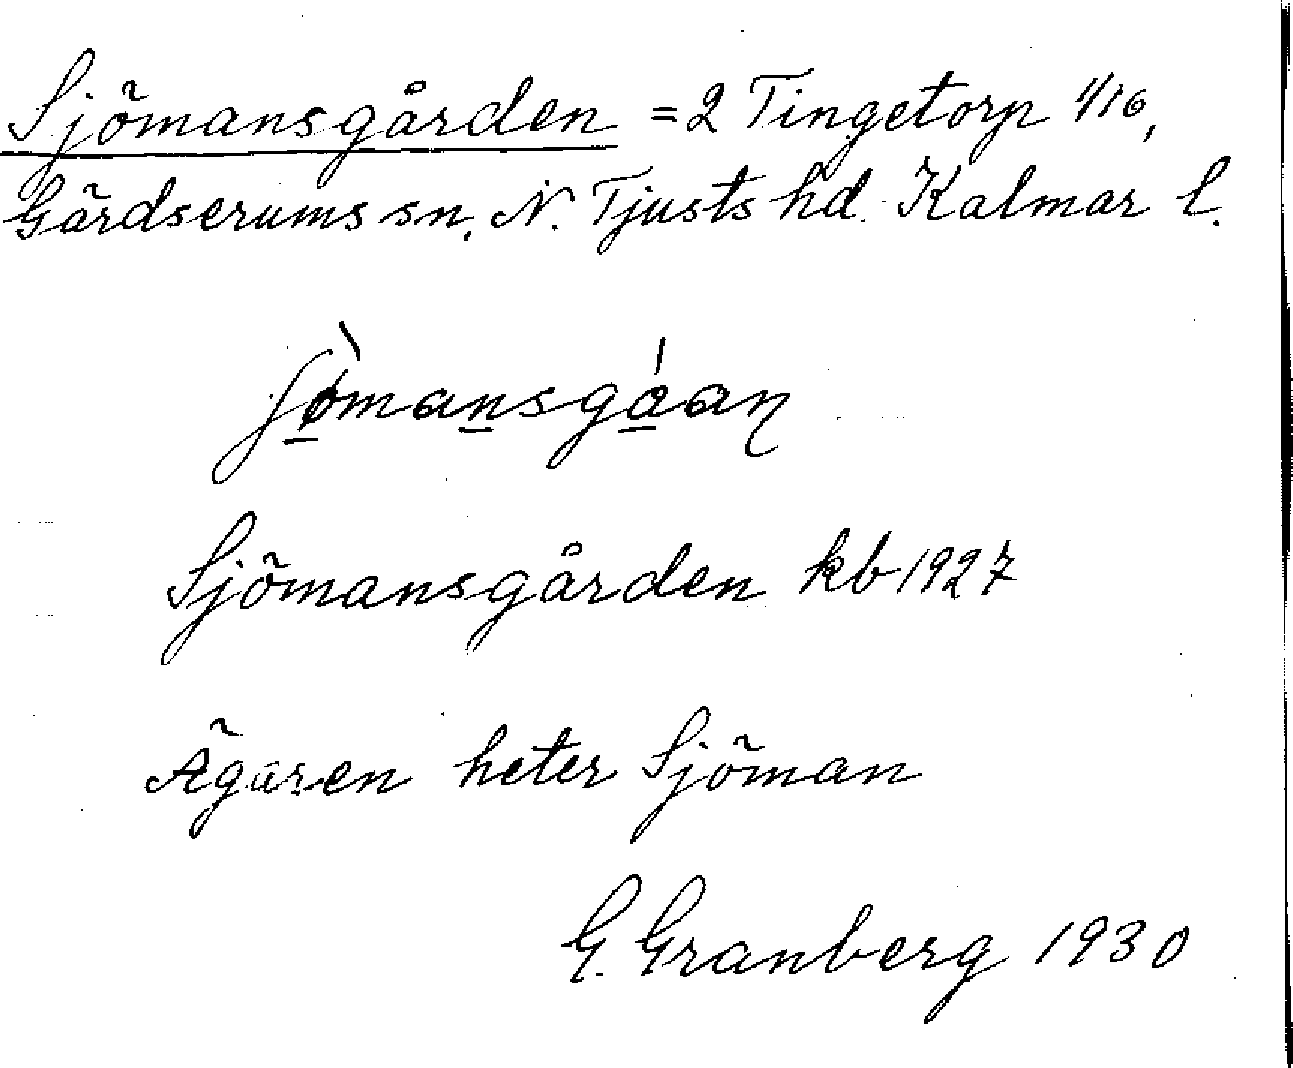 Sjömansgården = 2 Tingetorp 1/16,
Gärdserums sn. N. Tjusts hd. Kalmar l.
Sjömansgården kb 1927
Ägaren heter Sjöman
G. Granberg 1930